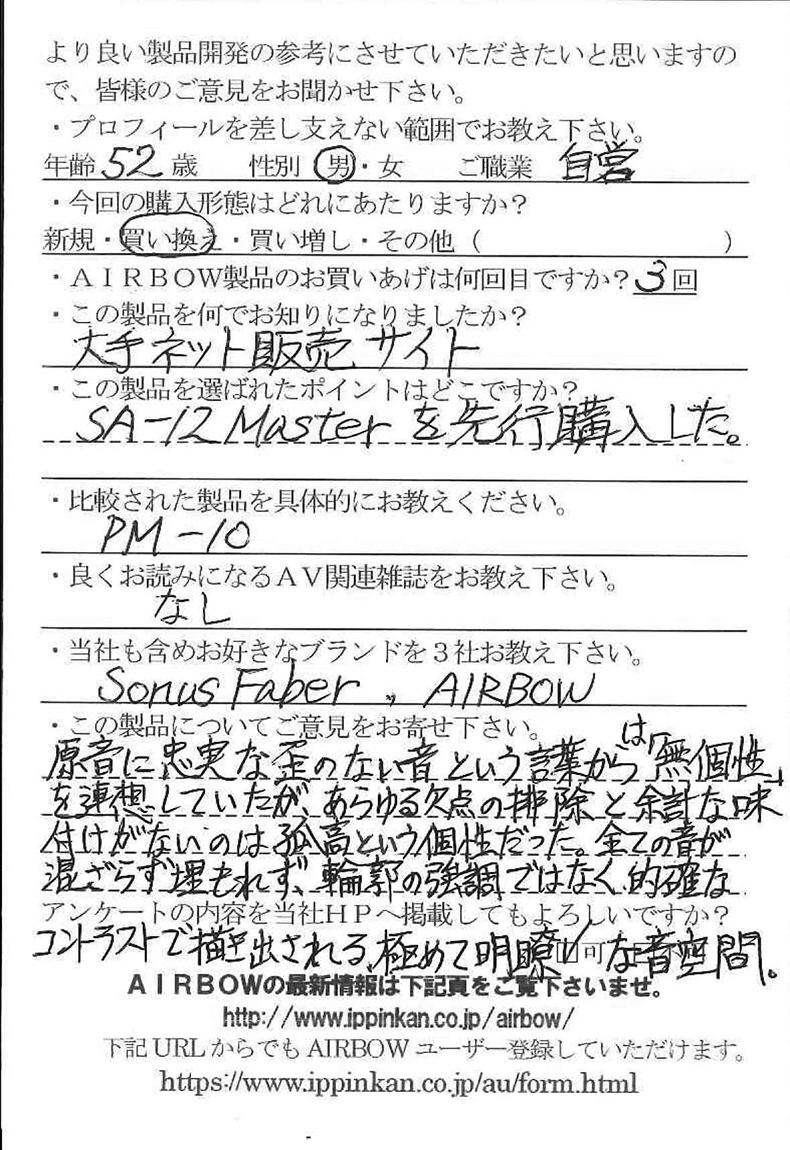 より良い製品開発の参考にさせていただきたいと思いますの
で、皆様のご意見をお聞かせ下さい。
・プロフィールを差し支えない範囲でお教え下さい。
年齢 52 歳 性別 男・女 ご職業 自営
・今回の購入形態はどれにあたりますか?
新規・買い換え・買い増し・その他（ ）
・AIRBOW製品のお買いあげは何回目ですか? 3回
・この製品を何でお知りになりましたか?
大手ネット販売サイト
・この製品を選ばれたポイントはどこですか?
SA-12 Master を先行購入した。
・比較された製品を具体的にお教えください。
PM-10
・良くお読みになるAV関連雑誌をお教え下さい。
なし
・当社も含めお好きなブランドを3社お教え下さい。
Sonus Faber , AIRBOW
・この製品についてご意見をお寄せ下さい。
原音に忠実な歪のない音という言葉からは「無個性」
を連想していたが、あらゆる欠点の排除と余計な味
付けがないのは孤高という個性だった。全ての音が
混ざらず埋もれず、輪郭の強調ではなく的確な
アンケートの内容を当社HPへ掲載してもよろしいですか?
コントラストで描き出される、極めて明瞭な音空間。
可
AIRBOWの最新情報は下記頁をご覧下さいませ。
http://www.ippinkan.co.jp/airbow/
下記URLからでもAIRBOWユーザー登録していただけます。
https://www.ippinkan.co.jp/au/form.html